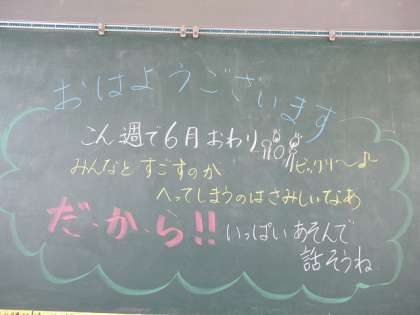 おはようございます
こん週で6月おわり
ビックリ〜♪
みんなと すごすのが
へってしまうのはさみしいなあ
だ・か・ら!!
いっぱい あそんで
話そうね